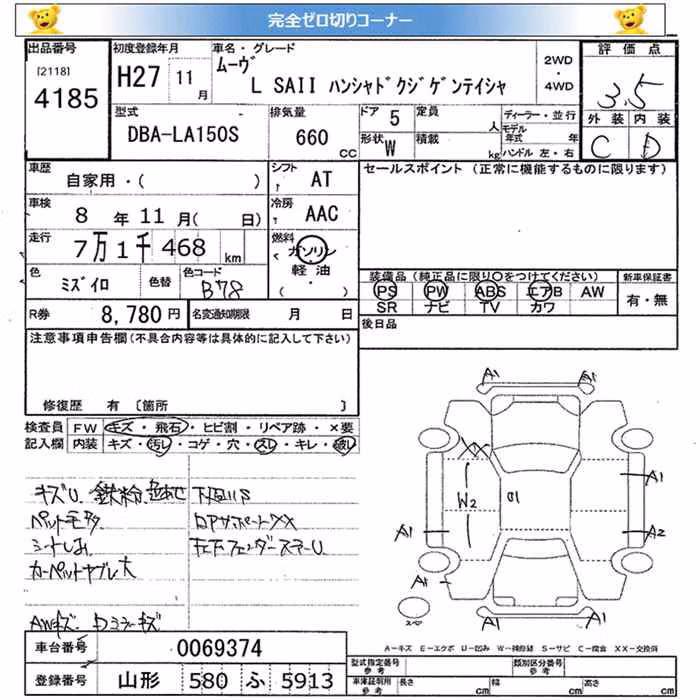 完全ゼロ切りコーナー
出品番号 [2118] 4185
初度登録年月 H27 11月
車名・グレード ムーヴ L SAII ハンシャドクジゲンテイシャ
2WD・4WD
評価点 3.5
外装 内装
C D
型式 DBA-LA150S
排気量 660 CC
ドア 5
定員 人
形状 W
積載 kg
ディーラー・並行
モデル年式 年
ハンドル 左・右
車歴 自家用・( )
シフト AT
セールスポイント (正常に機能するものに限ります)
車検 8年 11月( 日)
冷房 AAC
走行 7万1千468 km
燃料 ガソリン 軽油 ・( )
色 ミズイロ 色替 色コード B78
装備品 (純正品に限り○をつけてください)
PS PW ABS エアB AW
SR ナビ TV カワ
新車保証書 有・無
R券 8,780円 名変通知期限 月 日
後日品
注意事項申告欄 (不具合内容等は具体的に記入して下さい)
修復歴 有 〔箇所 〕
検査員記入欄
FW キズ・飛石・ヒビ割・リペア跡・×要
内装 キズ・汚レ・コゲ・穴・スレ・キレ・破レ
キズU 鉄粉 色あせ 下廻りS
ペット毛多
シートしみ
カーペットヤブレ大
AWキズ
A1 A1
A1
W2
A1 A2
A1
A1 A1
A-キズ E-エクボ U-凹み W-補修跡 S-サビ C-腐食 XX-交換済
車台番号 0069374
登録番号 山形 580 ふ 5913
型式指定番号 参考
類別区分番号 参考
車庫証明用 参考 長さ cm 幅 cm 高さ cm